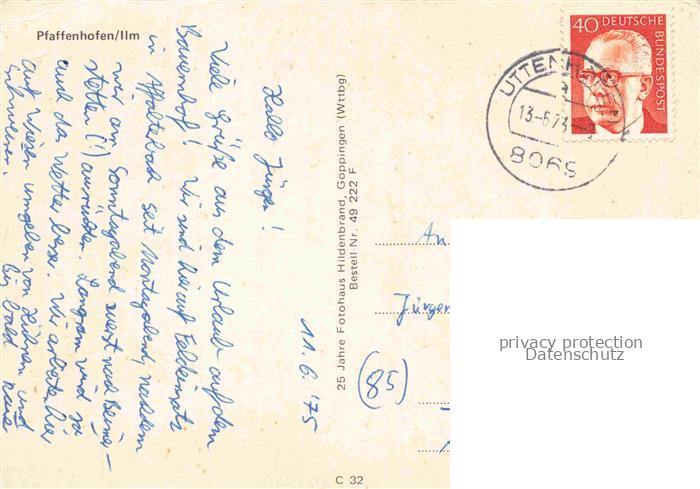 Pfaffenhofen/Ilm
11.6.'75
Hallo Jürgen!
Viele Grüße aus dem Urlaub auf dem
Bauernhof! Wir sind hier auf Feldeinsatz
in Affalterbach seit Montagabend, nachdem
wir am Sonntagabend zuerst nach
stetten (!) ausrückten. Langsam wird ja
auch das Wetter besser. Wir arbeiten hier
auf Wiesen umgeben von Hühnern und
Bis bald
25 Jahre Fotohaus Hildenbrand, Göppingen (Wttbg)
Bestell-Nr. 49 222 F
40 DEUTSCHE
BUNDESPOST
13.-6.75
8069
An
Jürgen
(85)
privacy protection
Datenschutz
C 32